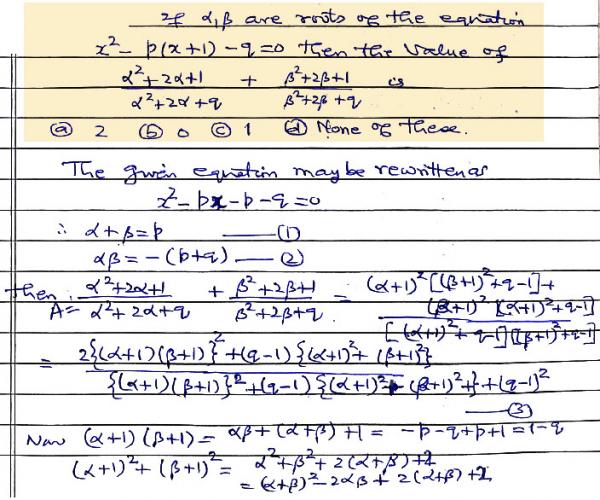 If α, β are roots of the equation
x² – p(x+1) – q = 0 then the value of
(α²+2α+1)/(α²+2α+q) + (β²+2β+1)/(β²+2β+q) is
(a) 2 (b) 0 (c) 1 (d) None of these.
The given equation may be rewritten as
x² – px – p – q = 0
∴ α+β = p —— (1)
αβ = –(p+q) —— (2)
then: A = (α²+2α+1)/(α²+2α+q) + (β²+2β+1)/(β²+2β+q) = ((α+1)²[(β+1)²+q-1] + (β+1)²[(α+1)²+q-1])/([(α+1)²+q-1][(β+1)²+q-1])
= (2{(α+1)(β+1)}² + (q-1){(α+1)²+(β+1)²})/({(α+1)(β+1)}² + (q-1){(α+1)²+(β+1)²+} + (q-1)²)
—— (3)
Now (α+1)(β+1) = αβ+(α+β)+1 = -p-q+p+1 = 1-q
(α+1)²+(β+1)² = α²+β²+2(α+β)+2
= (α+β)² – 2αβ + 2(α+β) + 2.